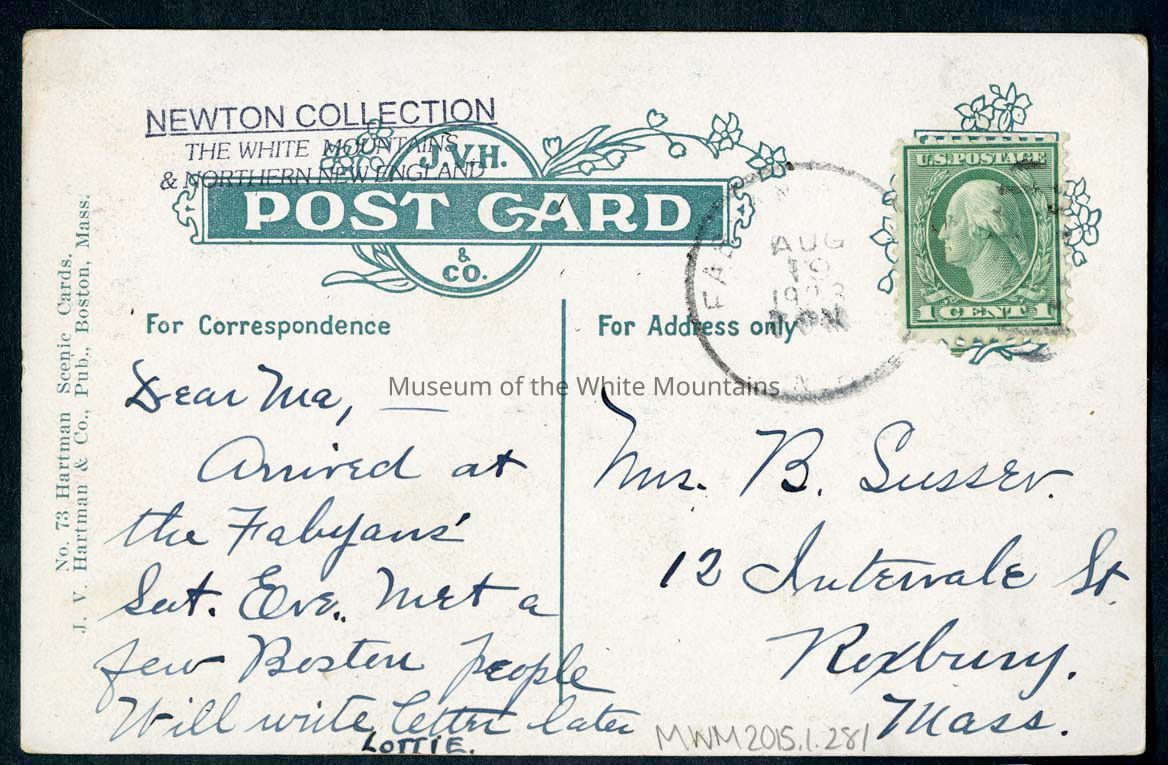 NEWTON COLLECTION
THE WHITE MOUNTAINS
& NORTHERN NEW ENGLAND
J.V.H.
POST CARD
&
CO.
U.S. POSTAGE
1 CENT 1
AUG
1923
For Correspondence
For Address only
No. 73 Hartman Scenic Cards.
J. V. Hartman & Co., Pub., Boston, Mass.
Museum of the White Mountains
Dear Ma, —
Arrived at
the Fabyans'
Sat. Eve. Met a
few Boston people
Will write letter later
LOTTIE.
Mrs. B. Susser.
12 Intervale St
Roxbury.
Mass.
MWM2015.1.281